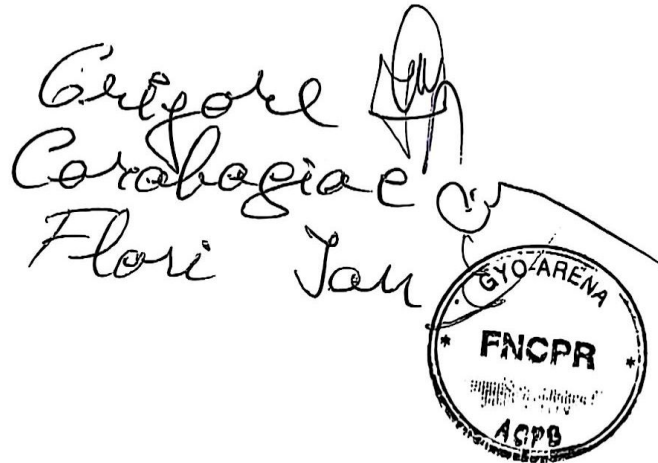 Grigore
Carabagiac
Flori Ion
GYO-ARENA
FNCPR
ACPB